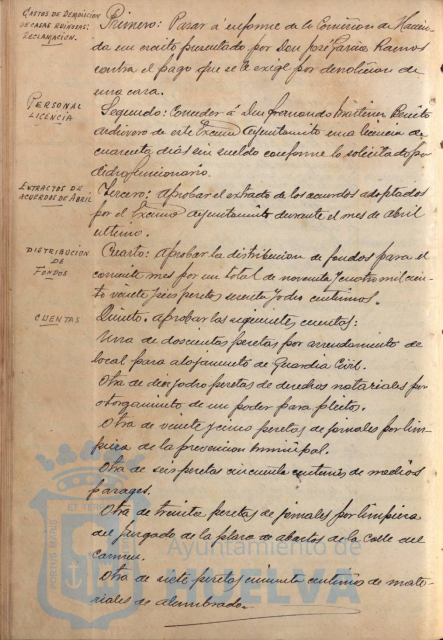 GASTOS DE DEMOLICION
DE CASAS RUINOSAS:
RECLAMACION.
Primero: Pasar á informe de la Comision de Hacien-
da un escrito presentado por Don José Garcia Ramos
contra el pago que se le exige por demolicion de
una casa.
PERSONAL
LICENCIA
Segundo: Conceder á Don Fernando Martinez Benito
Archivero de este Excmo Ayuntamiento una licencia de
cuarenta dias sin sueldo conforme lo solicitado por
dicho funcionario.
EXTRACTOS DE
ACUERDOS DE ABRIL
Tercero: Aprobar el extracto de los acuerdos adoptados
por el Excmo Ayuntamiento durante el mes de abril
ultimo.
DISTRIBUCION
DE
FONDOS
Cuarto: Aprobar la distribucion de fondos para el
corriente mes por un total de noventa y cuatro mil cien-
to veinte pesetas y dos centimos.
CUENTAS
Quinto. Aprobar las siguientes cuentas:
Una de doscientas pesetas por arrendamiento de
local para alojamiento de Guardia Civil.
Otra de diez y ocho pesetas de derechos notariales por
otorgamiento de un poder para pleitos.
Otra de veinte y cinco pesetas de jornales por lim-
pieza de la prevencion municipal.
Otra de seis pesetas cincuenta centimos de medios
parages.
Otra de treinta pesetas de jornales por limpieza
del juzgado de la plaza de abastos de la calle del
Carmen.
Otra de siete pesetas cincuenta centimos de mate-
riales de alumbrado.
PORTUS MARIS ET TERRAE
Ayuntamiento de
HUELVA